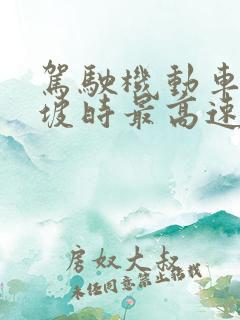 駕駛機動車
坡時最高速
房奴大叔
未經同意禁止轉載